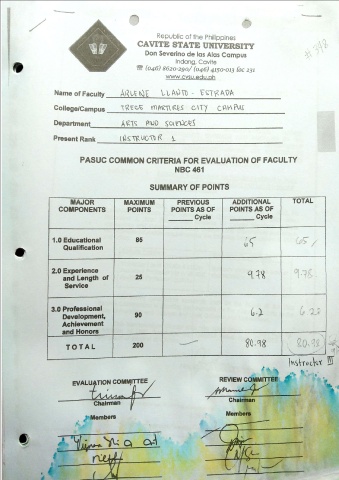 Republic of the Philippines
CAVITE STATE UNIVERSITY
Don Severino de las Alas Campus
Indang, Cavite
www.cvsu.edu.ph
Name of Faculty ARLENE LLANTO-ESTRADA
College/Campus TRECE MARTIRES CITY CAMPUS
Department ARTS AND SCIENCES
Present Rank INSTRUCTOR 1
PASUC COMMON CRITERIA FOR EVALUATION OF FACULTY
NBC 461
SUMMARY OF POINTS
MAJOR COMPONENTS MAXIMUM POINTS PREVIOUS POINTS AS OF Cycle ADDITIONAL POINTS AS OF Cycle TOTAL
1.0 Educational Qualification 85 65 65
2.0 Experience and Length of Service 25 9.78 9.78
3.0 Professional Development, Achievement and Honors 90 6.2 6.20
TOTAL 200 — 80.98 80.98
Instructor III
EVALUATION COMMITTEE REVIEW COMMITTEE
Chairman Chairman
Members Members